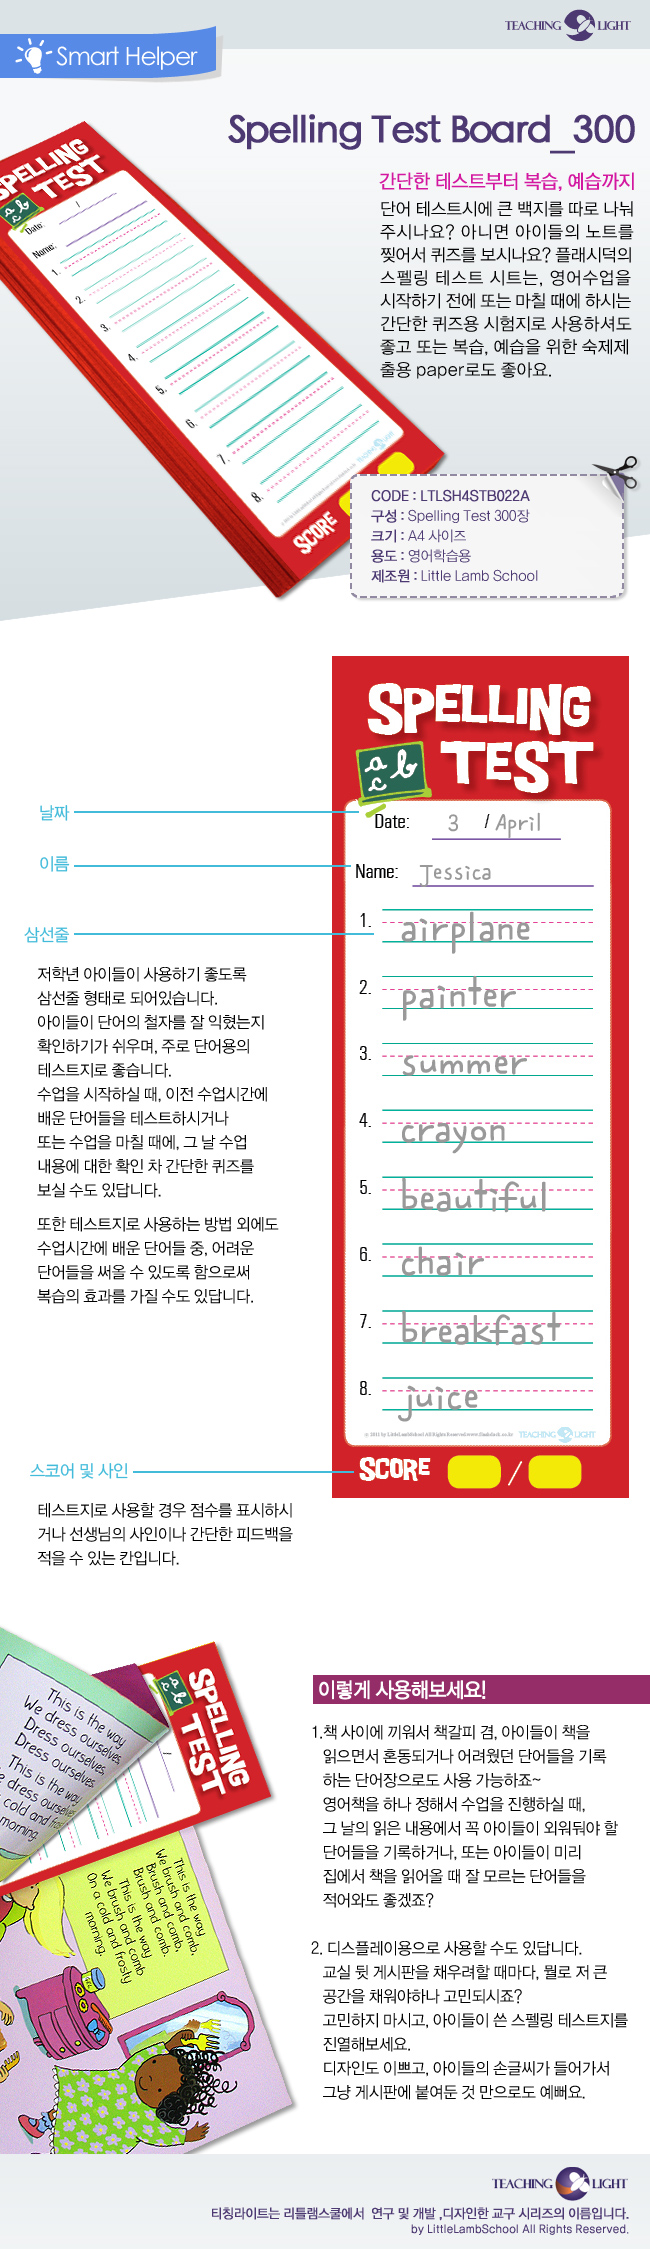 TEACHING LIGHT
Smart Helper
Spelling Test Board_300
간단한 테스트부터 복습, 예습까지
단어 테스트시에 큰 백지를 따로 나눠
주시나요? 아니면 아이들의 노트를
찢어서 퀴즈를 보시나요? 플래시덕의
스펠링 테스트 시트는, 영어수업을
시작하기 전에 또는 마칠 때에 하시는
간단한 퀴즈용 시험지로 사용하셔도
좋고 또는 복습, 예습을 위한 숙제제
출용 paper로도 좋아요.
SPELLING
TEST
abc
Date: /
Name:
1.
2.
3.
4.
5.
6.
7.
8.
SCORE
CODE : LTLSH4STB022A
구성 : Spelling Test 300장
크기 : A4 사이즈
용도 : 영어학습용
제조원 : Little Lamb School
SPELLING
TEST
a b
c
날짜
Date: 3 / April
이름
Name: Jessica
삼선줄
1. airplane
2. painter
3. summer
4. crayon
5. beautiful
6. chair
7. breakfast
8. juice
TEACHING LIGHT
SCORE /
저학년 아이들이 사용하기 좋도록
삼선줄 형태로 되어있습니다.
아이들이 단어의 철자를 잘 익혔는지
확인하기가 쉬우며, 주로 단어용의
테스트지로 좋습니다.
수업을 시작하실 때, 이전 수업시간에
배운 단어들을 테스트하시거나
또는 수업을 마칠 때에, 그 날 수업
내용에 대한 확인 차 간단한 퀴즈를
보실 수도 있답니다.
또한 테스트지로 사용하는 방법 외에도
수업시간에 배운 단어들 중, 어려운
단어들을 써올 수 있도록 함으로써
복습의 효과를 가질 수도 있답니다.
스코어 및 사인
테스트지로 사용할 경우 점수를 표시하시
거나 선생님의 사인이나 간단한 피드백을
적을 수 있는 칸입니다.
This is the way
We dress ourselves,
Dress ourselves,
Dress ourselves.
This is the way
dress ourselves
cold and
morning.
SPELLING
TEST
This is the way
We brush and comb,
Brush and comb,
Brush and comb.
This is the way
We brush and comb
On a cold and frosty
morning.
이렇게 사용해보세요!
1.책 사이에 끼워서 책갈피 겸, 아이들이 책을
읽으면서 혼동되거나 어려웠던 단어들을 기록
하는 단어장으로도 사용 가능하죠~
영어책을 하나 정해서 수업을 진행하실 때,
그 날의 읽은 내용에서 꼭 아이들이 외워둬야 할
단어들을 기록하거나, 또는 아이들이 미리
집에서 책을 읽어올 때 잘 모르는 단어들을
적어와도 좋겠죠?
2. 디스플레이용으로 사용할 수도 있답니다.
교실 뒷 게시판을 채우려할 때마다, 뭘로 저 큰
공간을 채워야하나 고민되시죠?
고민하지 마시고, 아이들이 쓴 스펠링 테스트지를
진열해보세요.
디자인도 이쁘고, 아이들의 손글씨가 들어가서
그냥 게시판에 붙여둔 것 만으로도 예뻐요.
TEACHING LIGHT
티칭라이트는 리틀램스쿨에서 연구 및 개발 ,디자인한 교구 시리즈의 이름입니다.
by LittleLambSchool All Rights Reserved.